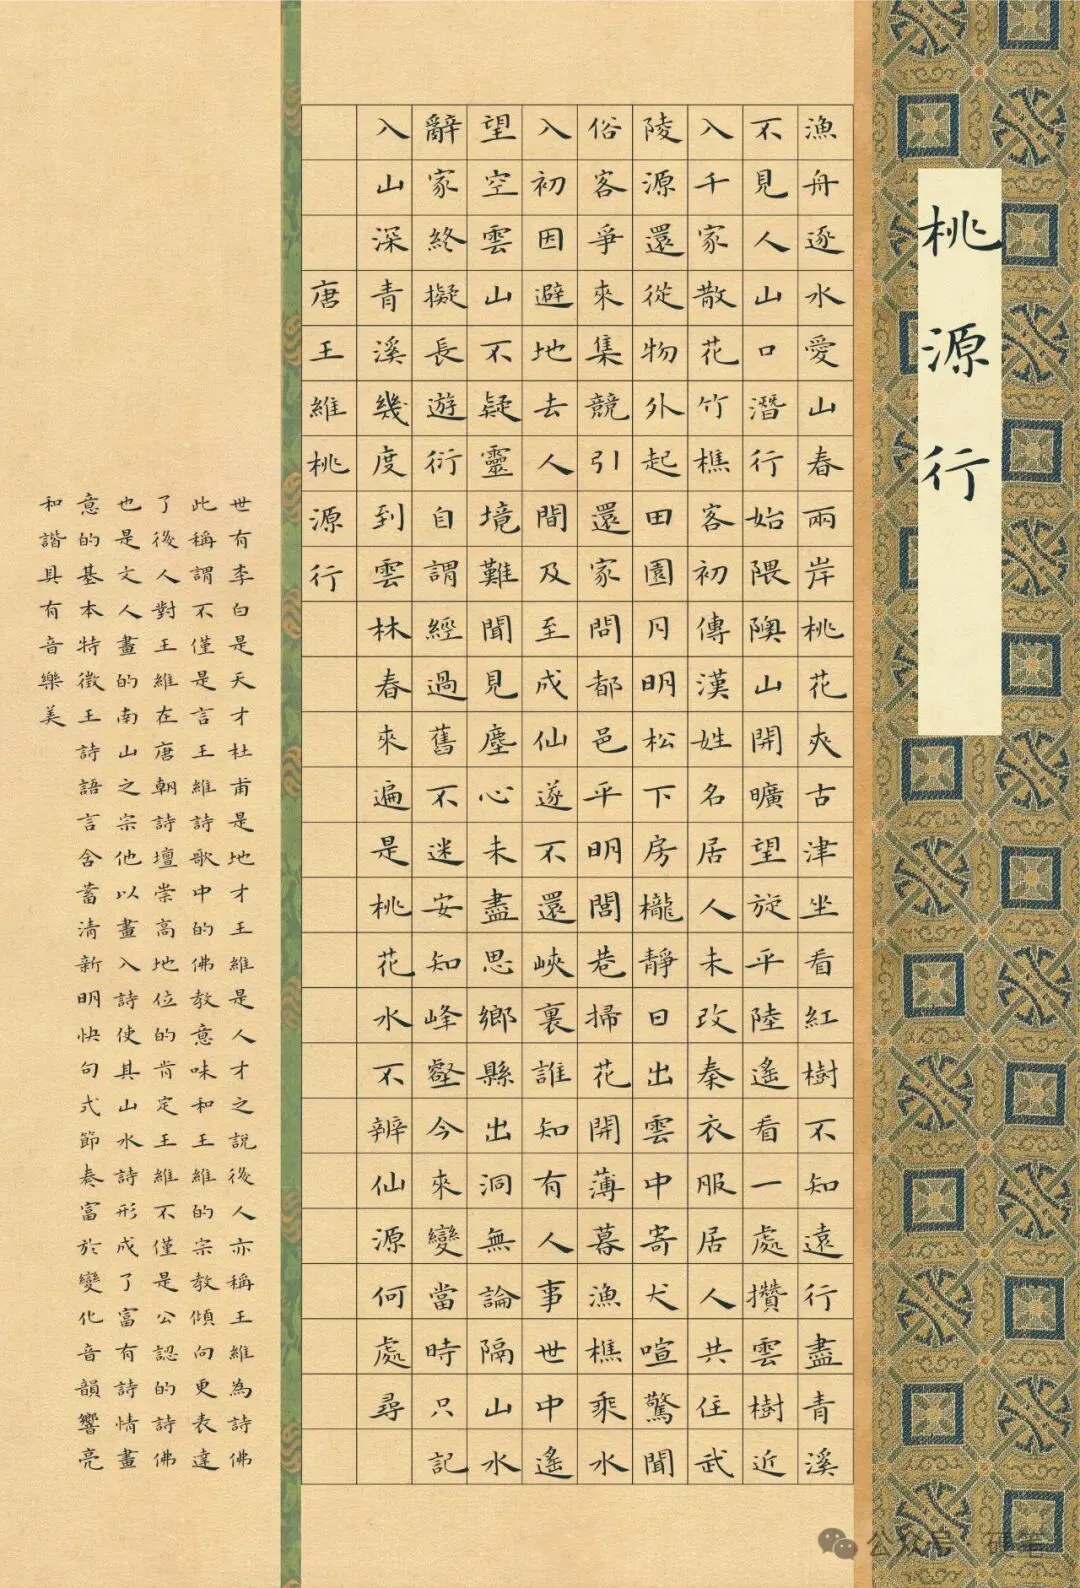 桃源行
漁舟逐水愛山春兩岸桃花夾古津坐看紅樹不知遠行盡青溪
不見人山口潛行始隈隩山開曠望旋平陸遙看一處攢雲樹近
入千家散花竹樵客初傳漢姓名居人未改秦衣服居人共住武
陵源還從物外起田園月明松下房櫳靜日出雲中寄犬喧驚聞
俗客爭來集競引還家問都邑平明閭巷掃花開薄暮漁樵乘水
入初因避地去人間及至成仙遂不還峽裏誰知有人事世中遙
望空雲山不疑靈境難聞見塵心未盡思鄉縣出洞無論隔山水
辭家終擬長遊衍自謂經過舊不迷安知峰壑今來變當時只記
入山深青溪幾度到雲林春來遍是桃花水不辨仙源何處尋
唐王維桃源行
世有李白是天才杜甫是地才王維是人才之說後人亦稱王維為詩佛
此稱謂不僅是言王維詩歌中的佛教意味和王維的宗教傾向更表達
了後人對王維在唐朝詩壇崇高地位的肯定王維不僅是公認的詩佛
也是文人畫的南山之宗他以畫入詩使其山水詩形成了富有詩情畫
意的基本特徵王詩語言含蓄清新明快句式節奏富於變化音韻響亮
和諧具有音樂美
公众号·硬笔